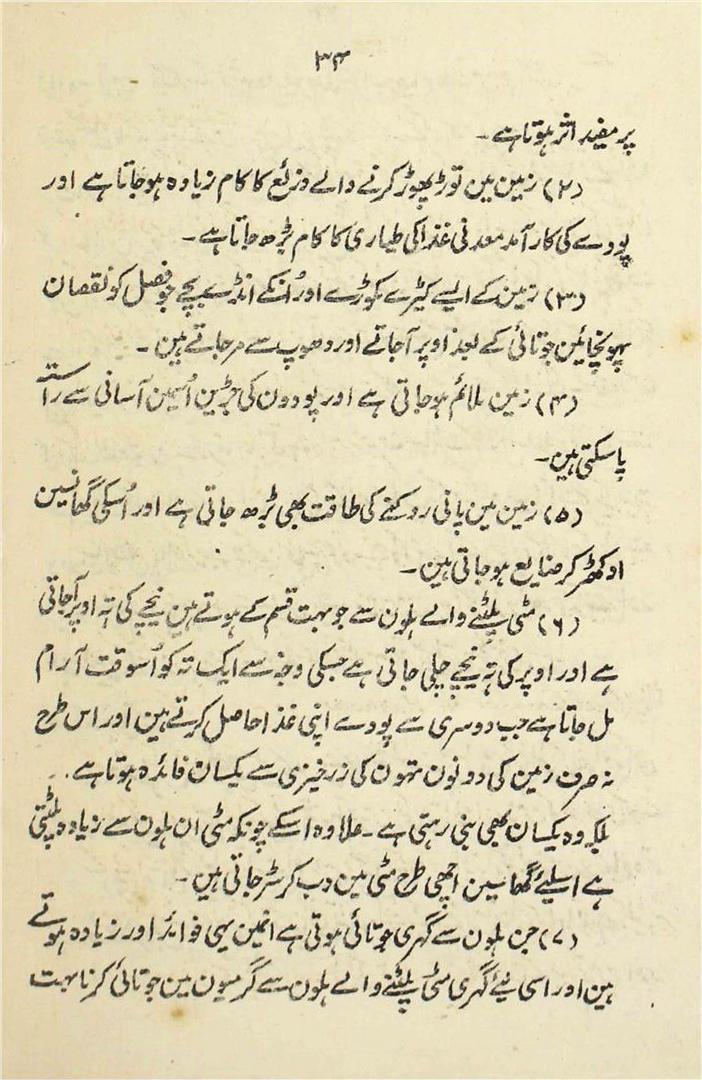 ۳۴
پر مفید اثر ہوتا ہے۔
(۲) زمین مین توڑ پھوڑ کرنے والے ذرائع کا کام زیادہ ہوجاتا ہے اور
پودے کی کارآمد معدنی غذا کی طیاری کا کام بڑھ جاتا ہے۔
(۳) زمین کے ایسے کیڑے مکوڑے اور اُنکے انڈے بچے جو فصل کو نقصان
پہونچائین جوتائی کے بعد اوپر آجاتے اور دھوپ سے مرجاتے ہین۔
(۴) زمین ملائم ہوجاتی ہے اور پودون کی جڑین اُسمین آسانی سے راستہ
پاسکتی ہین۔
(۵) زمین مین پانی روکنے کی طاقت بھی بڑھ جاتی ہے اور اُسکی گھانسین
اوکھڑ کر ضایع ہوجاتی ہین۔
(۶) مٹی پلٹنے والے ہلون سے جو بہت قسم کے ہوتے ہین نیچے کی تہ اوپر آجاتی
ہے اور اوپر کی تہ نیچے چلی جاتی ہے جسکی وجہ سے ایک تہ کو اُسوقت آرام
مل جاتا ہے جب دوسری سے پودے اپنی غذا حاصل کرتے ہین اور اس طرح
نہ صرف زمین کی دونون تہون کی زرخیزی سے یکسان فائدہ ہوتا ہے۔
بلکہ وہ یکسان بھی بنی رہتی ہے۔ علاوہ اسکے چونکہ مٹی ان ہلون سے زیادہ پلٹتی
ہے اسلیئے گھاسین اچھی طرح مٹی مین دب کر سڑ جاتی ہین۔
(۷) جن ہلون سے گہری جوتائی ہوتی ہے انمین یہی فوائد اور زیادہ ہوتے
ہین اور اسی لیئے گہری مٹی پلٹنے والے ہلون سے گرمیون مین جوتائی کرنا بہت